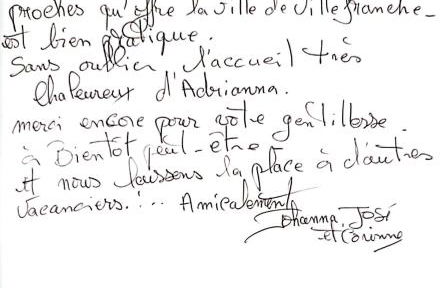 proches qu'offre la ville de Villefranche-
est bien pratique.
Sans oublier l'accueil très
chaleureux d'Adrianna.
merci encore pour votre gentillesse.
à Bientôt peut-être
et nous laissons la place à d'autres
vacanciers.!... Amicalement
Johanna, José
et Corinne